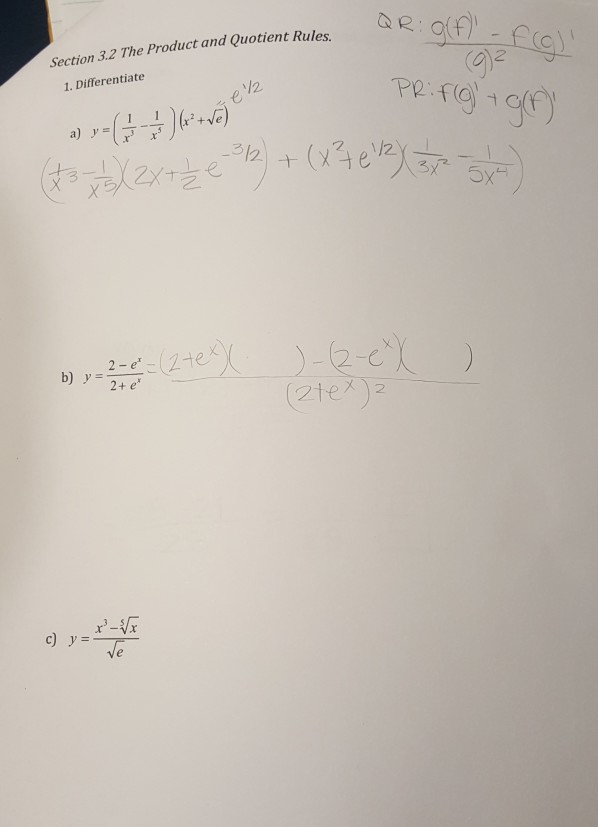 QR: g(f)' - f(g)' / (g)²
Section 3.2 The Product and Quotient Rules.
PR: f(g)' + g(f)'
1. Differentiate
e^1/2
a) y = (1/x³ - 1/x⁵)(x² + √e)
(1/x³ - 1/x⁵)(2x + 1/2 e^-3/2) + (x² + e^1/2)(1/3x² - 1/5x⁴)
b) y = 2 - eˣ / 2 + eˣ = (2+eˣ)( ) - (2-eˣ)( ) / (2+eˣ)²
c) y = x³ - ⁵√x / √e